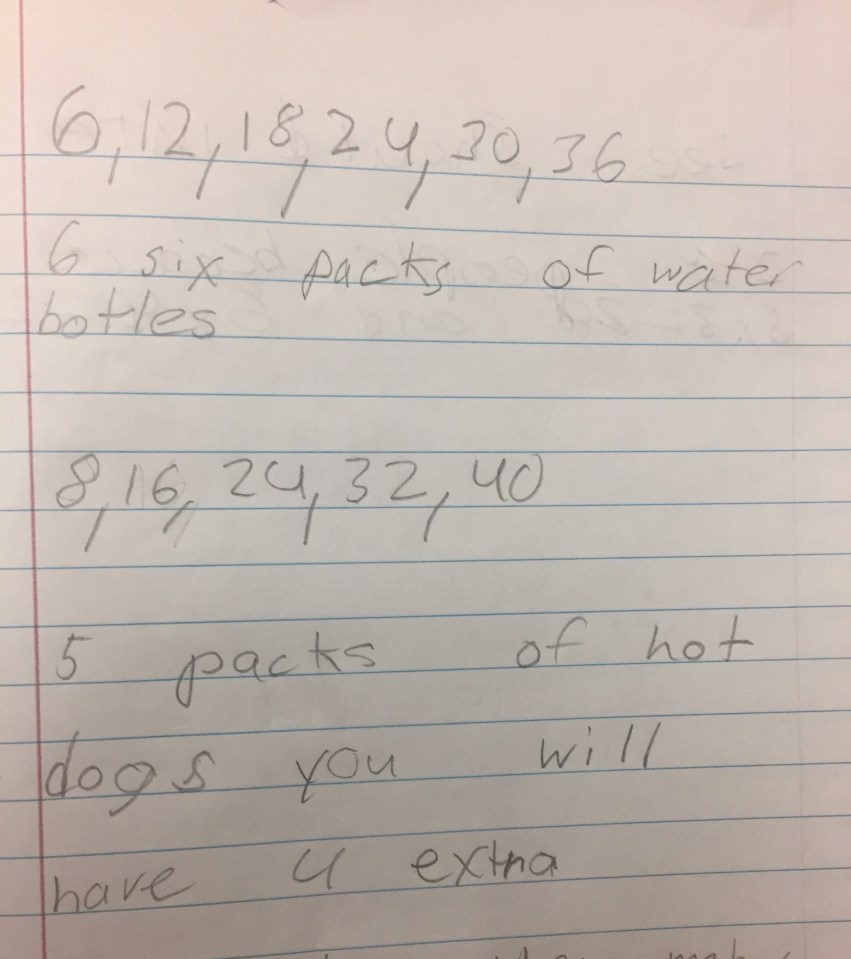 6, 12, 18, 24, 30, 36
6 six packs of water
botles
8, 16, 24, 32, 40
5 packs of hot
dogs you will
have 4 extra